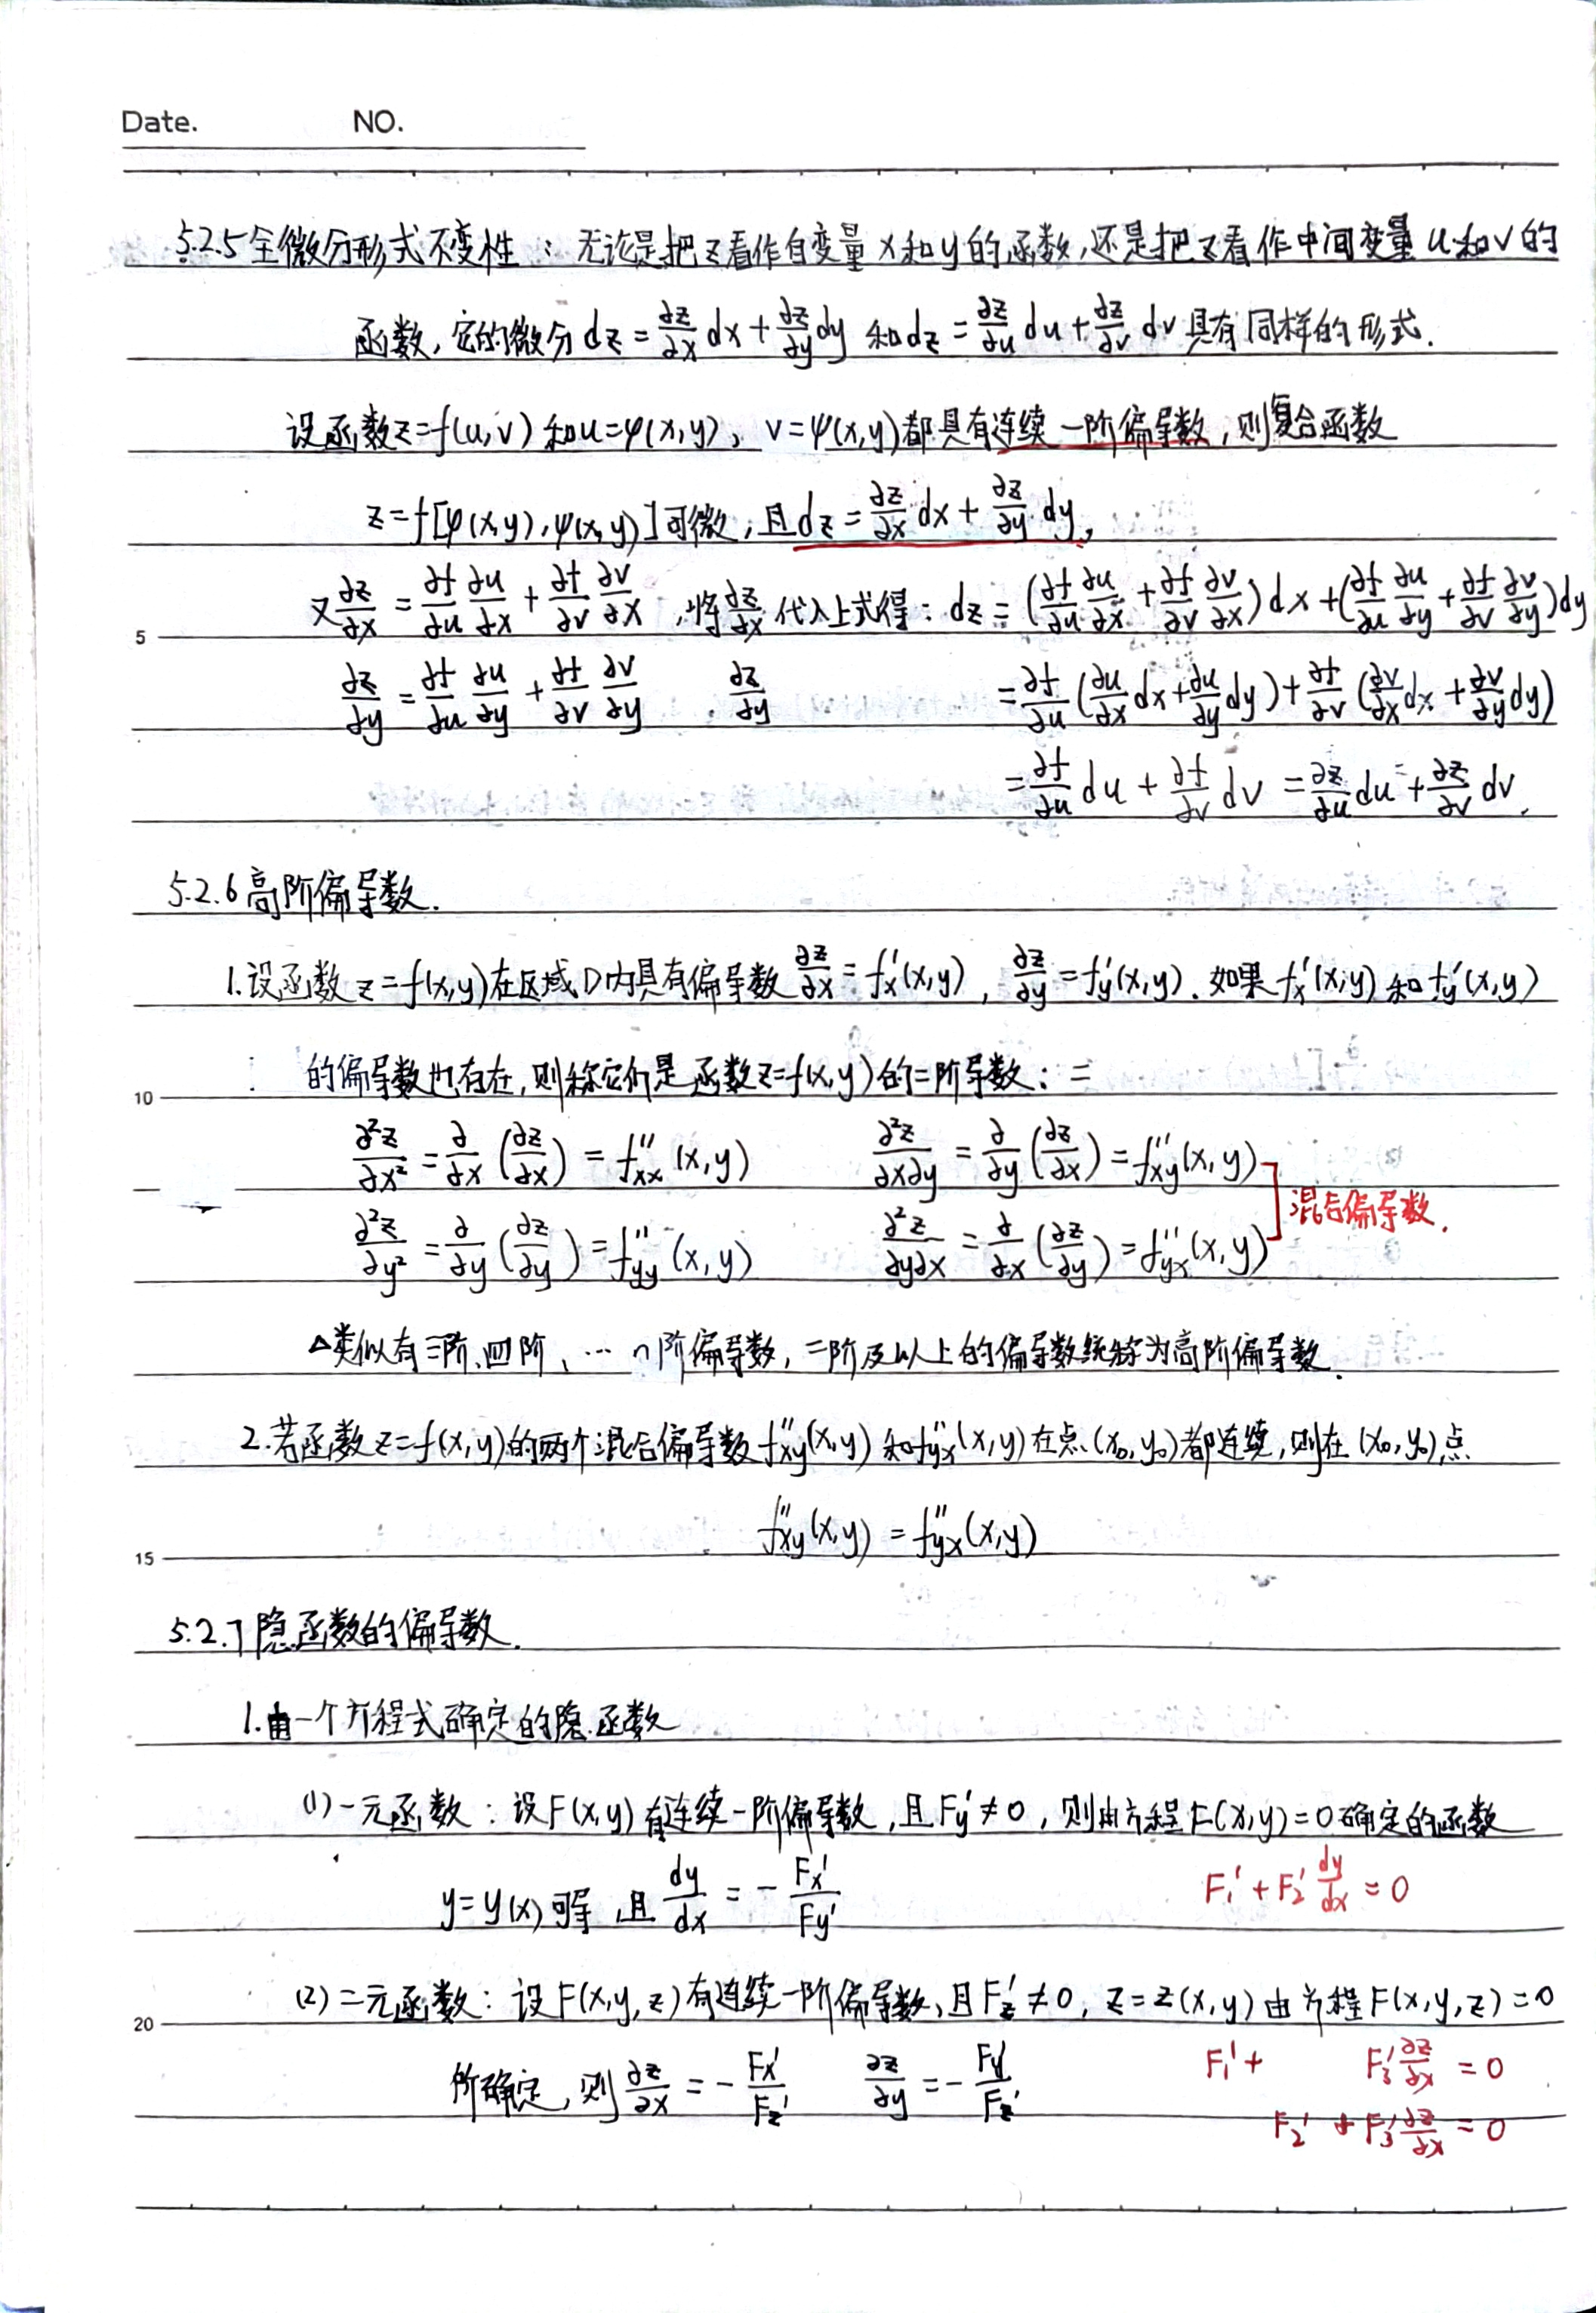 Date. NO.
5.2.5 全微分形式不变性：无论是把z看作自变量x和y的函数,还是把z看作中间变量u和v的
函数,它的微分 dz = ∂z/∂x dx + ∂z/∂y dy 和 dz = ∂z/∂u du + ∂z/∂v dv 具有同样的形式.
设函数z=f(u,v) 和u=φ(x,y), v=ψ(x,y)都具有连续一阶偏导数,则复合函数
z=f[φ(x,y),ψ(x,y)]可微,且dz = ∂z/∂x dx + ∂z/∂y dy,
又 ∂z/∂x = ∂f/∂u ∂u/∂x + ∂f/∂v ∂v/∂x ,将 ∂z/∂x 代入上式得: dz = (∂f/∂u ∂u/∂x + ∂f/∂v ∂v/∂x) dx + (∂f/∂u ∂u/∂y + ∂f/∂v ∂v/∂y) dy
5
∂z/∂y = ∂f/∂u ∂u/∂y + ∂f/∂v ∂v/∂y ∂z/∂y = ∂f/∂u (∂u/∂x dx + ∂u/∂y dy) + ∂f/∂v (∂v/∂x dx + ∂v/∂y dy)
= ∂f/∂u du + ∂f/∂v dv = ∂z/∂u du + ∂z/∂v dv.
5.2.6 高阶偏导数.
1.设函数 z=f(x,y)在区域D内具有偏导数 ∂z/∂x = f'x(x,y), ∂z/∂y = f'y(x,y). 如果f'x(x,y) 和 f'y(x,y)
的偏导数也存在,则称它们是函数z=f(x,y)的二阶导数: =
10
∂²z/∂x² = ∂/∂x (∂z/∂x) = f''xx (x,y) ∂²z/∂x∂y = ∂/∂y (∂z/∂x) = f''xy(x,y)
混合偏导数.
∂²z/∂y² = ∂/∂y (∂z/∂y) = f''yy (x,y) ∂²z/∂y∂x = ∂/∂x (∂z/∂y) = f''yx(x,y)
△类似有三阶、四阶、… n阶偏导数, 二阶及以上的偏导数统称为高阶偏导数.
2.若函数 z=f(x,y)的两个混合偏导数f''xy(x,y) 和f''yx(x,y) 在点(x₀,y₀)都连续,则在(x₀,y₀)点
f''xy(x,y) = f''yx(x,y)
15
5.2.7 隐函数的偏导数.
1.由一个方程式确定的隐函数
(1)一元函数: 设F(x,y)有连续一阶偏导数,且Fy'≠0, 则由方程F(x,y)=0确定的函数
y=y(x)可导,且 dy/dx = - Fx'/Fy' F₁' + F₂' dy/dx = 0
(2)二元函数: 设F(x,y,z)有连续一阶偏导数,且Fz'≠0, z=z(x,y)由方程F(x,y,z)=0
20
所确定,则 ∂z/∂x = - Fx'/Fz' ∂z/∂y = - Fy'/Fz' F₁' + F₃' ∂z/∂x = 0
F₂' + F₃' ∂z/∂x = 0